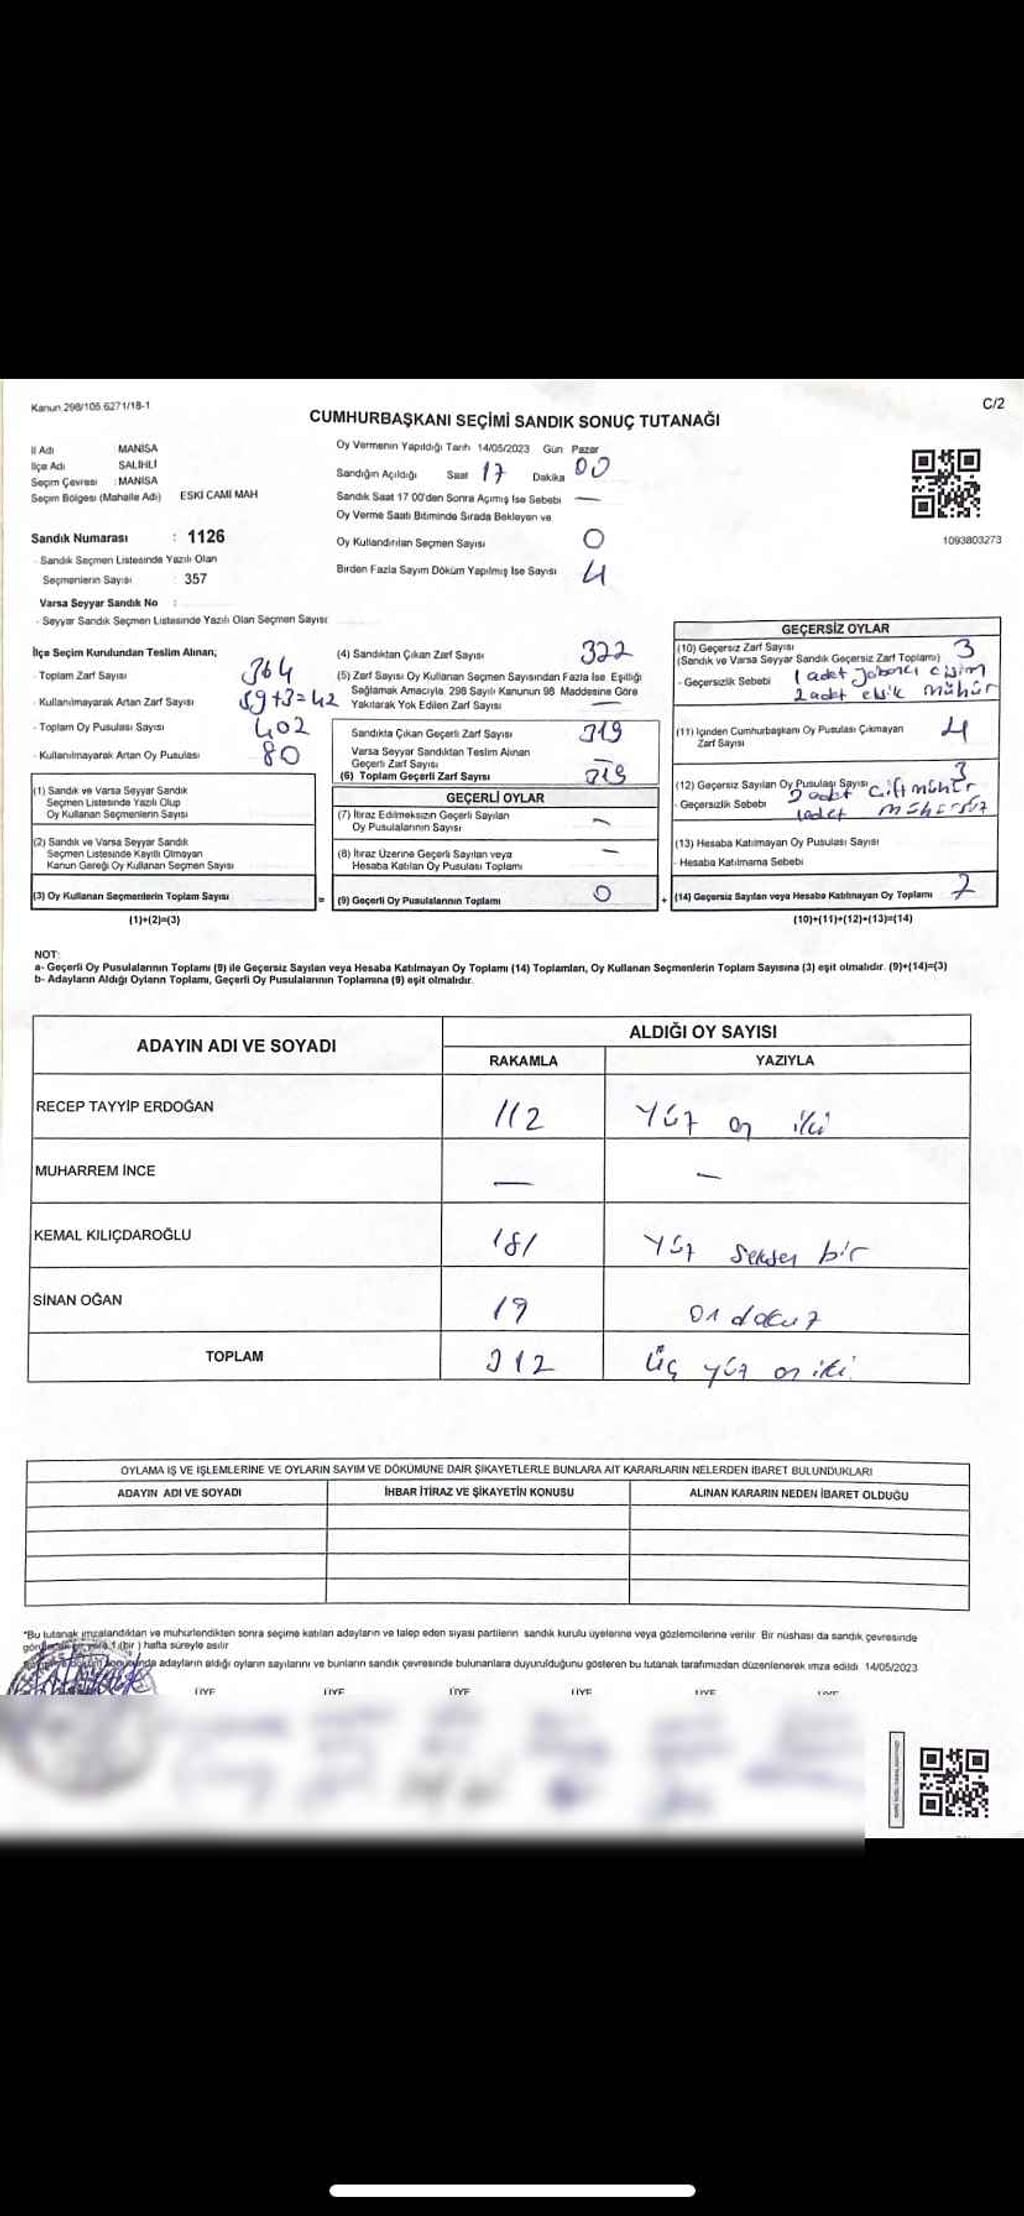 Kanun 298/105 6271/18-1
C/2
CUMHURBAŞKANI SEÇİMİ SANDIK SONUÇ TUTANAĞI
İl Adı MANİSA
İlçe Adı SALİHLİ
Seçim Çevresi : MANİSA
Seçim Bölgesi (Mahalle Adı) ESKİ CAMİ MAH
Oy Vermenin Yapıldığı Tarih 14/05/2023 Gün Pazar
Sandığın Açıldığı Saat 17 Dakika 00
Sandık Saat 17 00'den Sonra Açımış İse Sebebi —
Oy Verme Saati Bitiminde Sırada Bekleyen ve
Oy Kullandırılan Seçmen Sayısı 0
Birden Fazla Sayım Döküm Yapılmış İse Sayısı 4
1093803273
Sandık Numarası : 1126
- Sandık Seçmen Listesinde Yazılı Olan
Seçmenlerin Sayısı : 357
Varsa Seyyar Sandık No :
- Seyyar Sandık Seçmen Listesinde Yazılı Olan Seçmen Sayısı
İlçe Seçim Kurulundan Teslim Alınan;
- Toplam Zarf Sayısı 364
- Kullanılmayarak Artan Zarf Sayısı +3=42
- Toplam Oy Pusulası Sayısı 402
- Kullanılmayarak Artan Oy Pusulası 80
(1) Sandık ve Varsa Seyyar Sandık
Seçmen Listesinde Yazılı Olup
Oy Kullanan Seçmenlerin Sayısı
(2) Sandık ve Varsa Seyyar Sandık
Seçmen Listesinde Kayıtlı Olmayan
Kanun Gereği Oy Kullanan Seçmen Sayısı
(3) Oy Kullanan Seçmenlerin Toplam Sayısı
(1)+(2)=(3)
(4) Sandıktan Çıkan Zarf Sayısı 322
(5) Zarf Sayısı Oy Kullanan Seçmen Sayısından Fazla İse Eşitliği
Sağlamak Amacıyla, 298 Sayılı Kanunun 98 Maddesine Göre
Yakılarak Yok Edilen Zarf Sayısı —
Sandıkta Çıkan Geçerli Zarf Sayısı 319
Varsa Seyyar Sandıktan Teslim Alınan
Geçerli Zarf Sayısı —
(6) Toplam Geçerli Zarf Sayısı 319
GEÇERLİ OYLAR
(7) İtiraz Edilmeksizin Geçerli Sayılan
Oy Pusulalarının Sayısı —
(8) İtiraz Üzerine Geçerli Sayılan veya
Hesaba Katılan Oy Pusulası Toplamı —
= (9) Geçerli Oy Pusulalarının Toplamı 0
GEÇERSİZ OYLAR
(10) Geçersiz Zarf Sayısı 3
(Sandık ve Varsa Seyyar Sandık Geçersiz Zarf Toplamı)
- Geçersizlik Sebebi 1 adet yabancı cisim
2 adet eksik mühür
(11) İçinden Cumhurbaşkanı Oy Pusulası Çıkmayan
Zarf Sayısı 4
(12) Geçersiz Sayılan Oy Pusulası Sayısı 3
- Geçersizlik Sebebi 2 adet çift mühür
1 adet mühürsüz
(13) Hesaba Katılmayan Oy Pusulası Sayısı
- Hesaba Katılmama Sebebi
+ (14) Geçersiz Sayılan veya Hesaba Katılmayan Oy Toplamı 7
(10)+(11)+(12)+(13)=(14)
NOT:
a- Geçerli Oy Pusulalarının Toplamı (9) ile Geçersiz Sayılan veya Hesaba Katılmayan Oy Toplamı (14) Toplamları, Oy Kullanan Seçmenlerin Toplam Sayısına (3) eşit olmalıdır. (9)+(14)=(3)
b- Adayların Aldığı Oyların Toplamı, Geçerli Oy Pusulalarının Toplamına (9) eşit olmalıdır.
ADAYIN ADI VE SOYADI
ALDIĞI OY SAYISI
RAKAMLA YAZIYLA
RECEP TAYYİP ERDOĞAN 112 Yüz on iki
MUHARREM İNCE — —
KEMAL KILIÇDAROĞLU 181 Yüz seksen bir
SİNAN OĞAN 19 on dokuz
TOPLAM 312 Üç yüz on iki
OYLAMA İŞ VE İŞLEMLERİNE VE OYLARIN SAYIM VE DÖKÜMÜNE DAİR ŞİKAYETLERLE BUNLARA AİT KARARLARIN NELERDEN İBARET BULUNDUKLARI
ADAYIN ADI VE SOYADI İHBAR İTİRAZ VE ŞİKAYETİN KONUSU ALINAN KARARIN NEDEN İBARET OLDUĞU
*Bu tutanak imzalandıktan ve mühürlendikten sonra seçime katılan adayların ve talep eden siyasi partilerin sandık kurulu üyelerine veya gözlemcilerine verilir. Bir nüshası da sandık çevresinde
bir yere 1 (bir) hafta süreyle asılır
adayların aldığı oyların sayılarını ve bunların sandık çevresinde bulunanlara duyurulduğunu gösteren bu tutanak tarafımızdan düzenlenerek imza edildi 14/05/2023
ÜYE ÜYE ÜYE ÜYE ÜYE